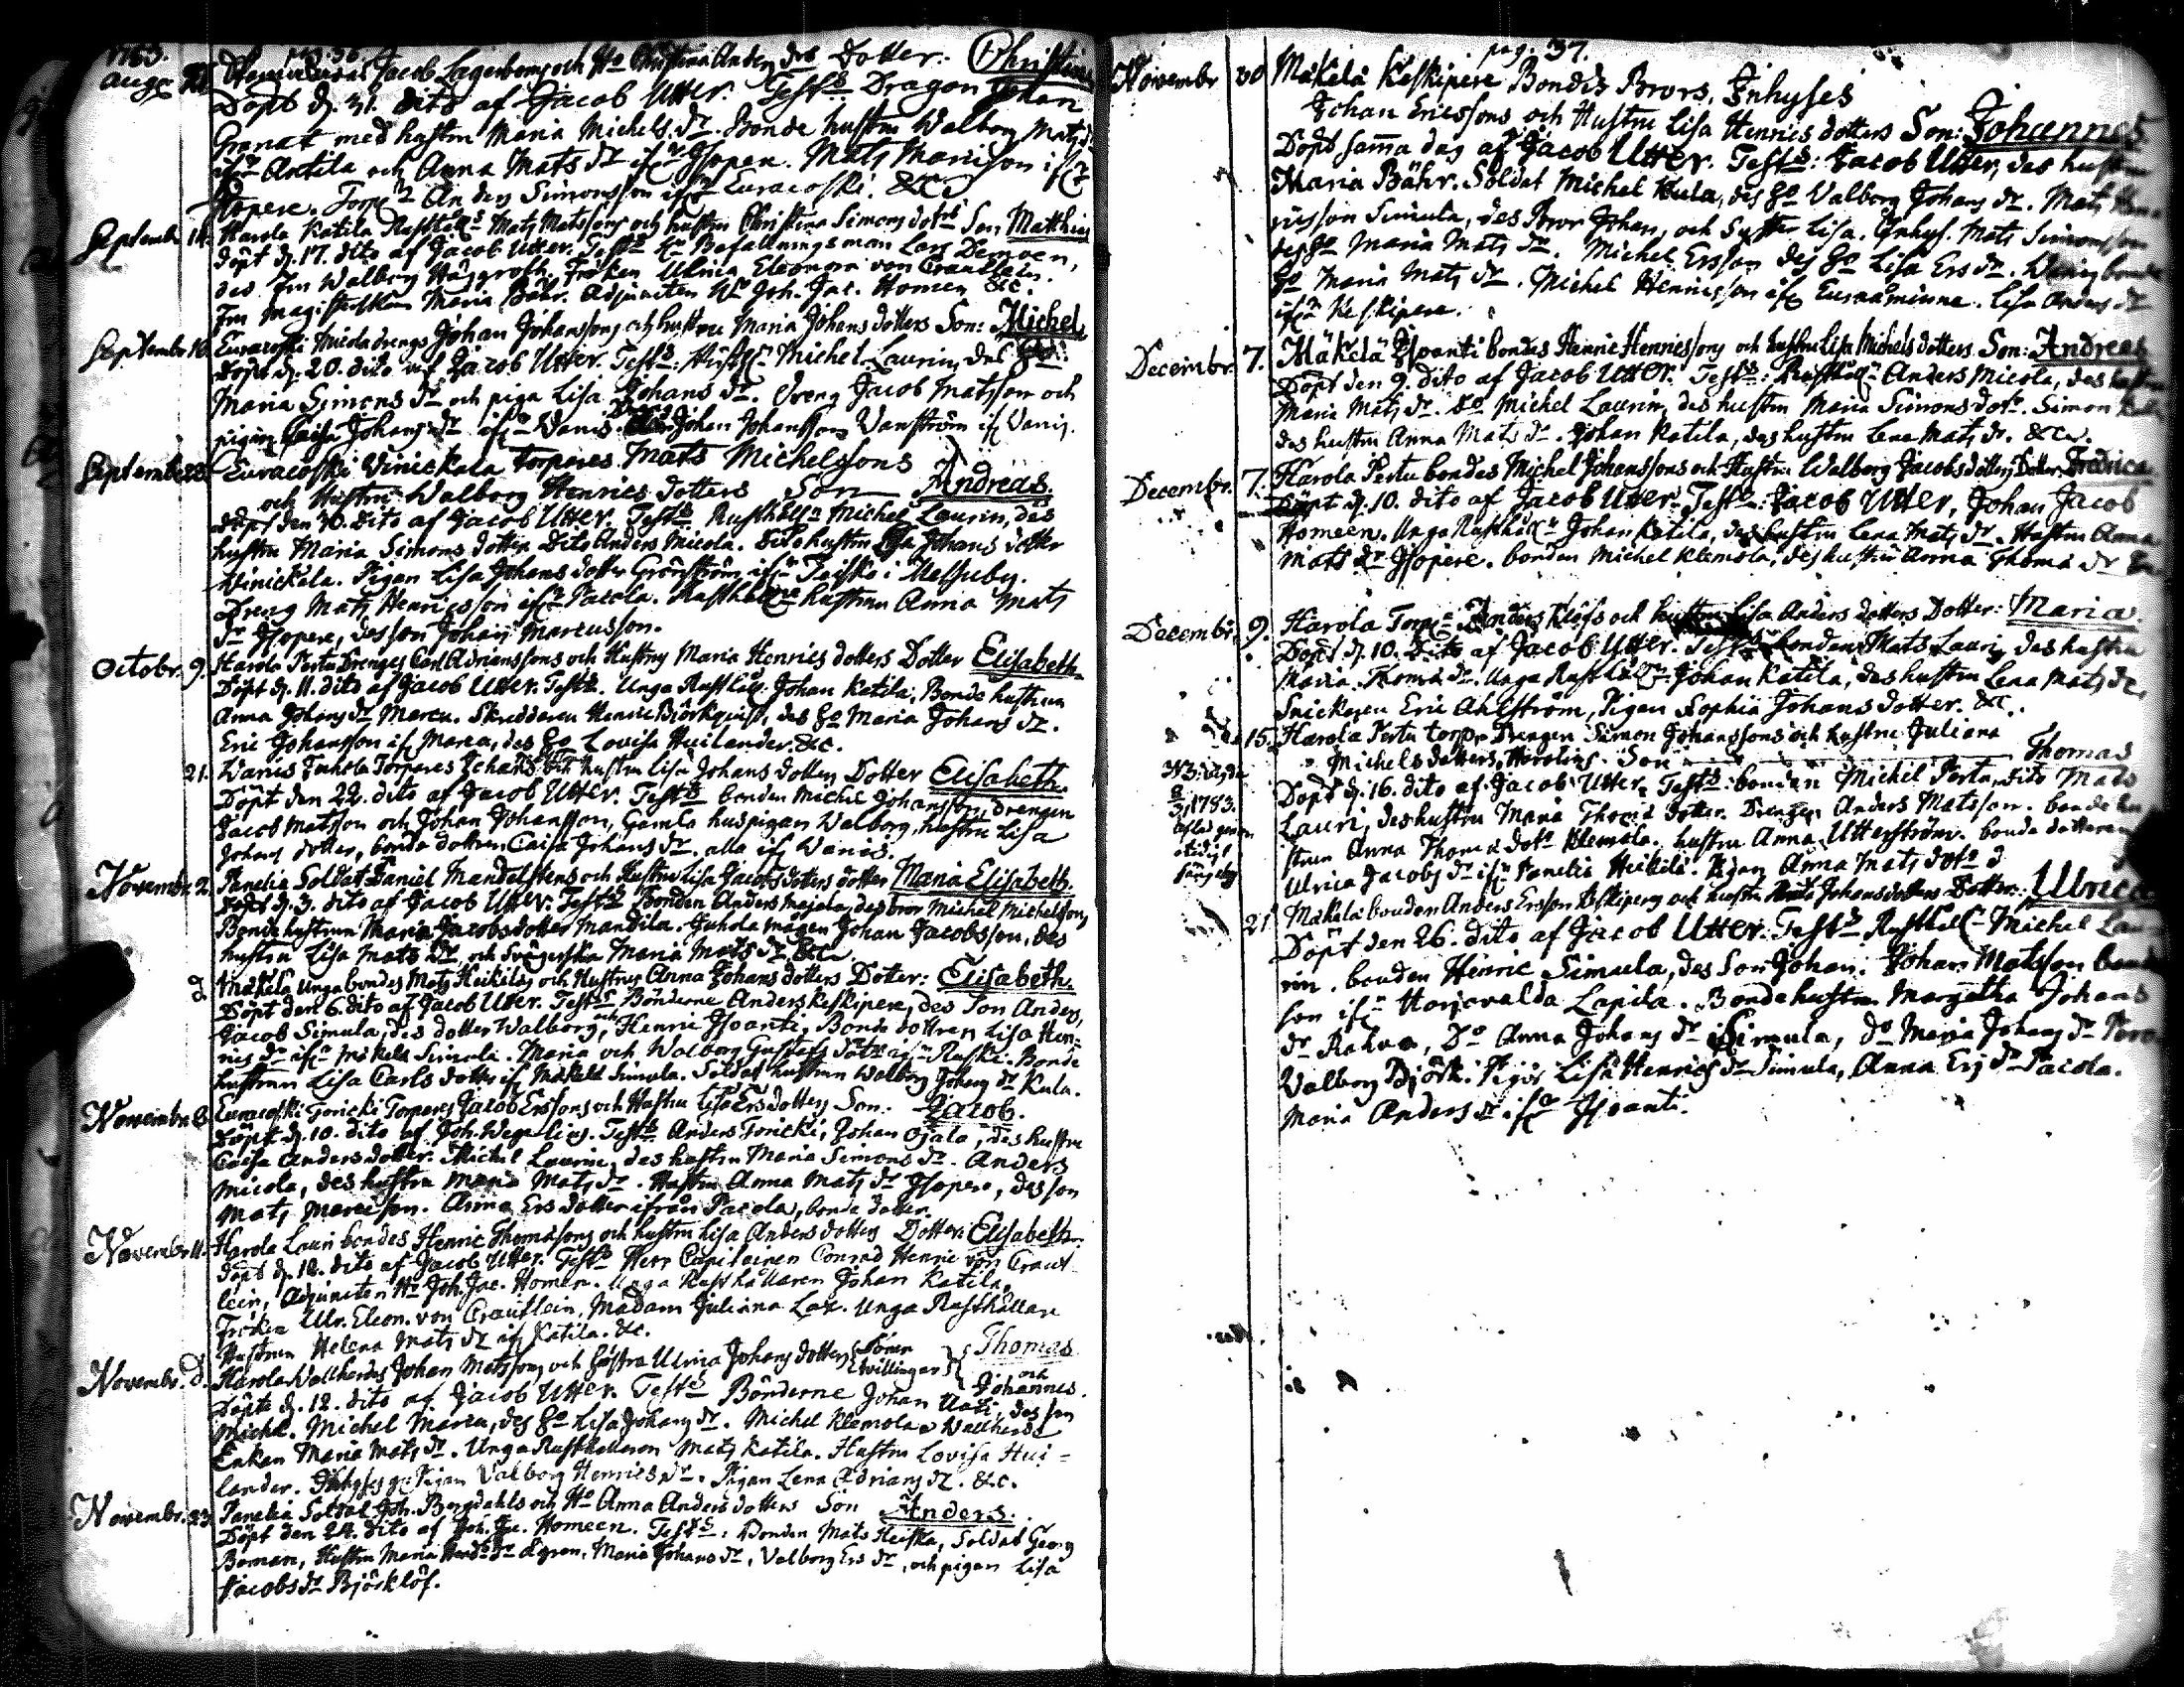 1783. pag. 36.
Aug. Jacob Lagerboms och Ho Christina Anders drs Dotter: Christina
Döpt d. 31. dito af Jacob Utter. Testb Dragon Johan
Granat med hustru Maria Michels dr. Bonde hustru Walborg Mats dr
ifrn Antila och Anna Mats dr ifrn Isopere. Mats Marcisson if
Isopere. Anders Simonsson ifrn Euracoski. &c.
Septembr Harola Katila Mats Matssons och hustru Christina Simons dotrs Son Matthias
döpt d. 17. dito af Jacob Utter. Testb Befallningsman Lars
des Fru Walborg Häggroth. Fröken Ulrica Eleonora von Crautlein.
Fru Magisterskan Maria Bähr. Adjuncten Hr Joh. Jac. Homen &c.
Septembr 16. Euracoski Micola drengs Johan Johanssons och hustru Maria Johans dotters Son: Michel
Döpt d. 20. dito af Jacob Utter. Testb: Michel Laurin, des Ho
Maria Simons dr och piga Lisa Johans dr. dreng Jacob Matsson och
pigan Caisa Johans dr ifrn Vanis. Johan Johansson Vanström if Vanis.
Septembr Euracoski Vinickala Torpares Mats Michelssons
och Hustru Walborg Henrics dotters Son Andreas.
döpt den 30. dito af Jacob Utter. Testb Rusthålln Michel Laurin, des
hustru Maria Simons dotter. Dito Anders Micola. Dito hustru Lisa Johans dotter
Vinickala. Pigan Lisa Johans dotter Grönström ifrn i
Dreng Mats Henricsson ifrn Pacola. hustrun Anna Mats
dr Isopere, des son Johan Marcusson.
Octobr. 9. Harola Pertu Drenges Carl Adrianssons och Hustrus Maria Henrics dotters Dotter Elisabeth.
Döpt d. 11. dito af Jacob Utter. Testb. Unga Rusthåll: Johan Katila, Bonde hustrun
Anna Johans dr Marcu. Skreddaren Henric Björkqvist, des Ho Maria Johans dr.
Eric Johansson if Marcu, des Ho Lovisa Huilander. &c.
21. Vanis Torpares Johans och hustru Lisa Johans dotters Dotter Elisabeth.
Döpt den 22. dito af Jacob Utter. Testb bonden Michel Johansson, drengen
Jacob Matsson och Johan Johansson, Gamla huspigan Walborg, hustru Lisa
Johans dotter, bonde dottren Caisa Johans dr. alla if Vanis.
Novembr. 2. Panelia Soldat Daniel Mandelstens och Hustru Lisa Jacobs dotters dotter Maria Elisabeth.
Döpt d. 3. dito af Jacob Utter. Testb Bonden Anders Majala, des bror Michel Michelsson,
Bonde hustrun Maria Jacobs dotter Mandila. Juhola mågen Johan Jacobsson, des
hustru Lisa Mats dr och Svägerska Maria Mats dr &c.
Mäkelä Unga bondes Mats Heikeläs och Hustrus Anna Johans dotters Dotter: Elisabeth.
Döpt den 6. dito af Jacob Utter. Testb Bönderne Anders Keskipere, des Son Anders,
Jacob Simula, des dotter Walborg, och Henric Isoanti, Bonde dottren Lisa Hen-
rics dr ifrn Mäkelä Simula. Maria och Walborg Gustafs döttr ifrn Ruski. Bonde
hustrun Lisa Carls dotter if Mäkelä Simula. Soldat hustrun Walborg Johans dr Kula.
Novembr 8. Euracoski Toricki Torpares Jacob Erssons och Hustru Lisa Ers dotters Son: Jacob.
Döpt d. 10. dito af Joh. Wegelius. Testb. Anders Toricki, Johan Ojala, des hustru
Caisa Anders dotter. Michel Laurin, des hustru Maria Simons dr. Anders
Micola, des hustru Maria Mats dr. Hustru Anna Mats dr Isopere, des son
Mats Marcisson. Anna Ers dotter ifrån Pacola, bonde dotter.
Novembr 11. Harola Lauri bondes Henric Thomassons och hustru Lisa Anders dotters Dotter: Elisabeth.
döpt d. 12. dito af Jacob Utter. Testb Herr Capitainen Conrad Henric von Craut-
lein, Adjuncten Hr Joh. Jac. Homen. Unga Rusthållaren Johan Katila,
Fröken Ulr. Eleon. von Crautlein. Madam Juliana Lax. Unga Rusthållare
Hustrun Helena Mats dr if Katila. &c.
Novembr. d. Harola Johan Matssons och hustru Ulrica Johans dotters Söner tvillingar Thomas
och Johannes.
Döpte d. 12. dito af Jacob Utter. Testb Bönderne Johan Uoti, des son
Michel. Michel Marcu, des Ho Lisa Johans dr. Michel Klemola
Enkan Maria Mats dr. Unga Rusthållaren Mats Katila. Hustru Lovisa Hui-
lander. Inhyses Pigan Valborg Henrics dr. Pigan Lena Adrians dr. &c.
Novembr. 23. Panelia Soldat Joh. Bergdahls och Ho Anna Anders dotters Son Anders.
Döpt den 24. dito af Joh. Jac. Homeen. Testb: Bonden Mats Heiska, Soldat Georg
Boman, Hustru Maria Maria Johans dr, Valborg Ers dr, och pigan Lisa
Jacobs dr Björklöf.
pag. 37.
Novembr 30 Mäkelä Keskipere Bondes Brors, Inhyses
Johan Ericssons och Hustru Lisa Henrics dotters Son: Johannes
Döpt samma dag af Jacob Utter. Testb: Jacob Utter, des hustru
Maria Bähr. Soldat Michel Kula, des Ho Valborg Johans dr. Mats
Simula, des Bror Johan, och Syster Lisa. Inhys. Mats Simonsson
des Ho Maria Mats dr. Michel Ersson des Ho Lisa Ers dr. bonde
Ho Maria Mats dr. Michel Henricsson if Euraåminne. Lisa Anders dr
ifrn Keskipere.
Decembr. 7. Mäkelä Isoanti bondes Henric Henricssons och hustru Lisa Michels dotters Son: Andreas
Döpt den 9. dito af Jacob Utter. Testb: Rusthålln Anders Micola, des hustru
Maria Mats dr. Do Michel Laurin, des hustru Maria Simons dotr. Simon
des hustru Anna Mats dr. Johan Katila, des hustru Lena Mats dr. &c.
Decembr. 7. Harola Pertu bondes Michel Johanssons och Hustru Walborg Jacobs dotters Dotter Fredrica
Döpt d. 10. dito af Jacob Utter. Testb: Jacob Utter, Johan Jacob
Homeen. Unga Rusthålln Johan Katila, des hustru Lena Mats dr. Hustru Anna
Mats dr Isopere. bonden Michel Klemola, des hustru Anna Thoma dr
Decembr. 9. Harola Torpn Anders Klöfs och hustru Lisa Anders dotters Dotter: Maria.
Döpt d. 10. dito af Jacob Utter. Testb bonden Mats Lauri, des hustru
Maria Thoma dr. Unga Rusthålln Johan Katila, des hustru Lena Mats dr,
Snickaren Eric Ahlström, Pigan Sophia Johans dotter. &c.
15. Harola Pertu torpr Drengen Simon Johanssons och hustru Juliana
Michels dotters, Son Thomas
Döpt d. 16. dito af Jacob Utter. Testb: bonden Michel Pertu, dito Mats
Lauri, des hustru Maria Thoma dotter. Drengen Anders Matsson. bonde hu-
strun Anna Thoma dotr Klemola. hustru Anna Utterström. bonde dotteren
Ulrica Jacobs dr ifrn Panelia Heikilä. Pigan Anna Mats dotr
NB.
1783.
21. Mäkelä bonden Anders Ersson Keskiperes och hustru Johans dotters Dotter: Ulrica
Döpt den 26. dito af Jacob Utter. Testb Rusthålln Michel Lau-
rin. bonden Henric Simula, des Son Johan. Johan Matsson bonde
son ifrn Harjavalda Lapila. Bonde hustru Margetha Johans
dr Rahva, Do Anna Johans dr Simula, do Maria Johans dr
Valborg Björk. Pigor Lisa Henrics dr Simula, Anna Ers dr Pacola.
Maria Anders dr ifrn Isoanti.